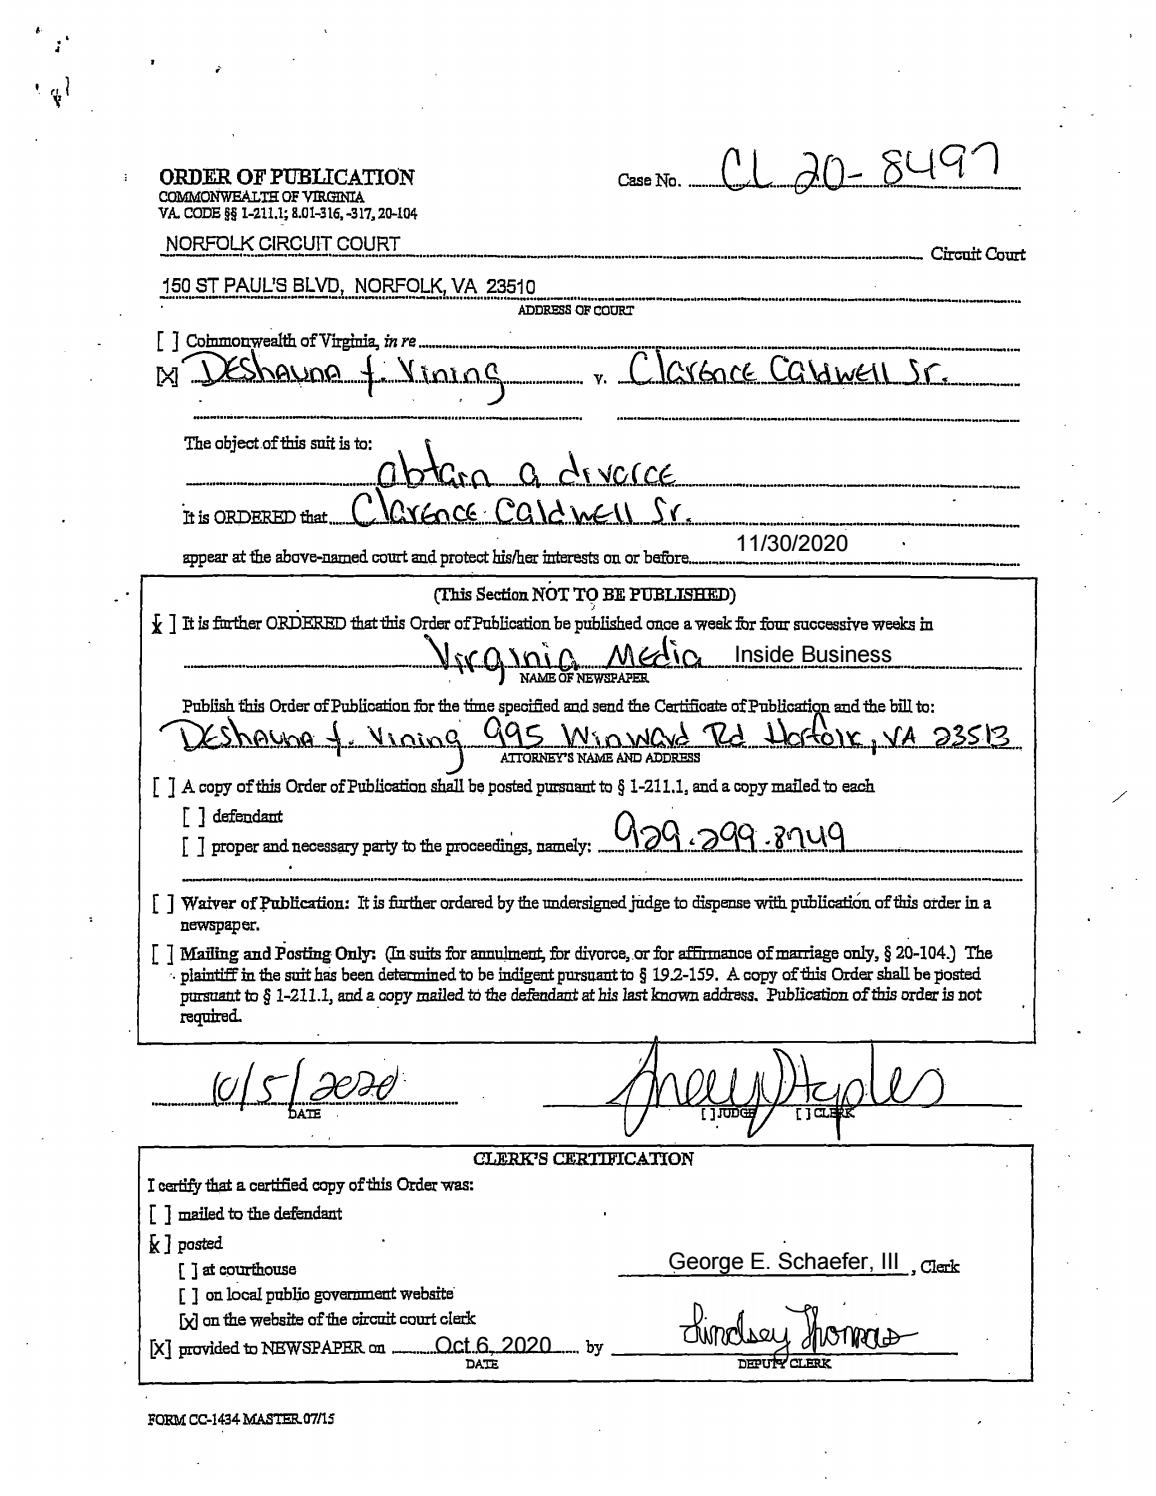 ORDER OF PUBLICATION
Case No. CL 20-8497
COMMONWEALTH OF VIRGINIA
VA. CODE §§ 1-211.1; 8.01-316, -317, 20-104
NORFOLK CIRCUIT COURT Circuit Court
150 ST PAUL'S BLVD, NORFOLK, VA 23510
ADDRESS OF COURT
[ ] Commonwealth of Virginia, in re
[X] DEShauna f. Vining v. Clarence Caldwell Sr.
The object of this suit is to:
obtain a divorce
It is ORDERED that Clarence Caldwell Sr.
appear at the above-named court and protect his/her interests on or before 11/30/2020
(This Section NOT TO BE PUBLISHED)
[x] It is further ORDERED that this Order of Publication be published once a week for four successive weeks in
Virginia Media Inside Business
NAME OF NEWSPAPER
Publish this Order of Publication for the time specified and send the Certificate of Publication and the bill to:
DEShauna f. Vining 995 Winward Rd Norfolk, VA 23513
ATTORNEY'S NAME AND ADDRESS
[ ] A copy of this Order of Publication shall be posted pursuant to § 1-211.1, and a copy mailed to each
[ ] defendant
[ ] proper and necessary party to the proceedings, namely: 929.299.8749
[ ] Waiver of Publication: It is further ordered by the undersigned judge to dispense with publication of this order in a
newspaper.
[ ] Mailing and Posting Only: (In suits for annulment, for divorce, or for affirmance of marriage only, § 20-104.) The
plaintiff in the suit has been determined to be indigent pursuant to § 19.2-159. A copy of this Order shall be posted
pursuant to § 1-211.1, and a copy mailed to the defendant at his last known address. Publication of this order is not
required.
10/5/2020
DATE
[ ] JUDGE [ ] CLERK
CLERK'S CERTIFICATION
I certify that a certified copy of this Order was:
[ ] mailed to the defendant
[x] posted
[ ] at courthouse
George E. Schaefer, III, Clerk
[ ] on local public government website
[x] on the website of the circuit court clerk
[X] provided to NEWSPAPER on Oct 6, 2020 by Lindsey Thomas
DATE DEPUTY CLERK
FORM CC-1434 MASTER 07/15